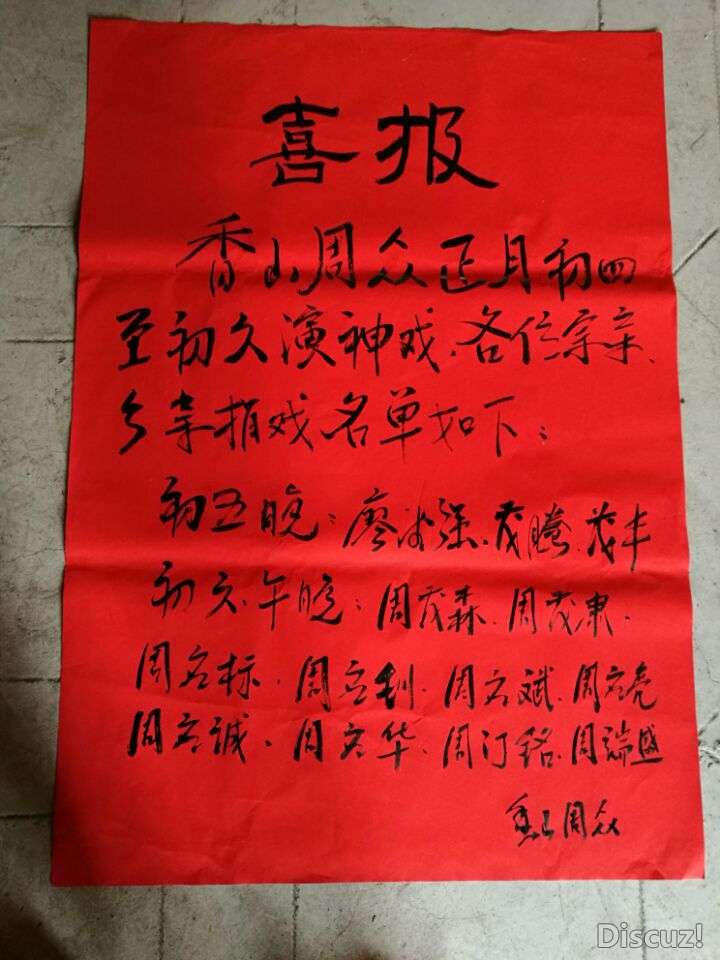 喜报
香山周众正月初四
至初久演神戏、各位宗亲、
乡亲捐戏名单如下：
初五晚：廖冰强、茂腾、茂丰
初六午晚：周茂森、周茂康、
周名标、周立钊、周立斌、周立亮
周立诚、周立华、周汀铭、周端盛
香山周众
Discuz!